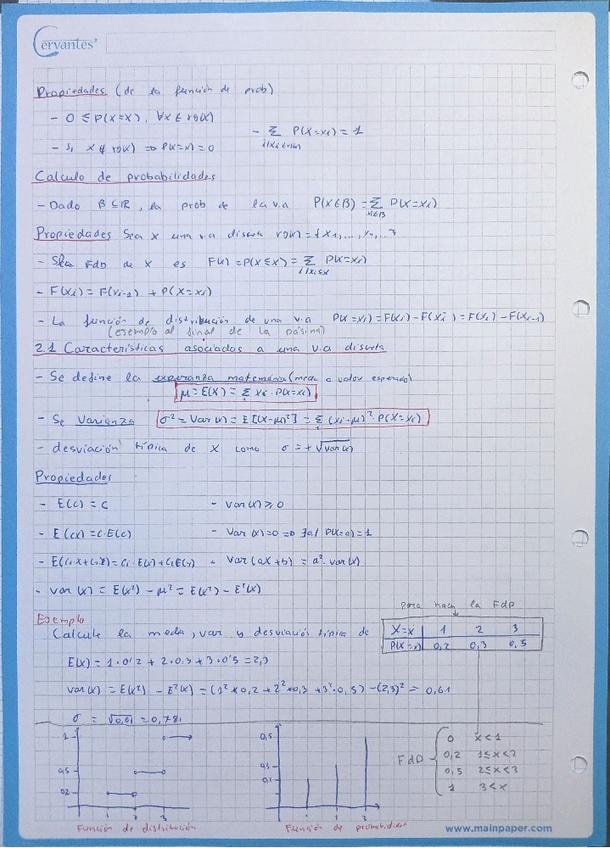 Cervantes
Propiedades (de la función de prob)
- 0 ≤ P(X=x), ∀x ∈ rg(X)
- Si x ∉ rg(X) ⇒ P(X=x) = 0
- Σ P(X=xi) = 1
Calculo de probabilidades
- Dado B ⊆ ℝ, la prob de la v.a P(X∈B) = Σ P(X=xi)
xi∈B
Propiedades Sea X una v.a discreta rg(X) = {x1, ..., xn, ...}
- Sea FdD de X es F(x) = P(X≤x) = Σ P(X=xi)
i/xi≤x
- F(xi) = F(xi-1) + P(X=xi)
- La función de distribución de una v.a P(X=xi) = F(xi) - F(xi⁻) = F(xi) - F(xi-1)
(ejemplo al final de la página)
2.1 Características asociados a una v.a discreta
- Se define la esperanza matemática (media o valor esperado)
μ = E(X) = Σ xi · P(X=xi)
- Se Varianza σ² = Var(X) = E[(X-μ)²] = Σ (xi-μ)² · P(X=xi)
- desviación típica de X como σ = +√Var(X)
Propiedades
- E(c) = c - Var(X) ≥ 0
- E(cX) = c·E(X) - Var(X) = 0 ⇒ ∃a/ P(X=a) = 1
- E(c1X+c2Y) = c1·E(X) + c2E(Y) - Var(aX+b) = a²·Var(X)
- Var(X) = E(X²) - μ² = E(X²) - E²(X)
para hacer la FdD
Ejemplo
Calcule la media, var y desviación típica de
X=x 1 2 3
P(X=x) 0,2 0,3 0,5
E(X) = 1·0'2 + 2·0,3 + 3·0'5 = 2,3
Var(X) = E(X²) - E²(X) = (1²×0,2 + 2²×0,3 + 3²·0,5) - (2,3)² = 0,61
σ = √0,61 = 0,781
1
0,5
0,2
1 2 3
Función de distribución
0,5
0,3
0,2
1 2 3
Función de probabilidad
FdD
0 x<1
0,2 1≤x<2
0,5 2≤x<3
1 3<x
www.mainpaper.com